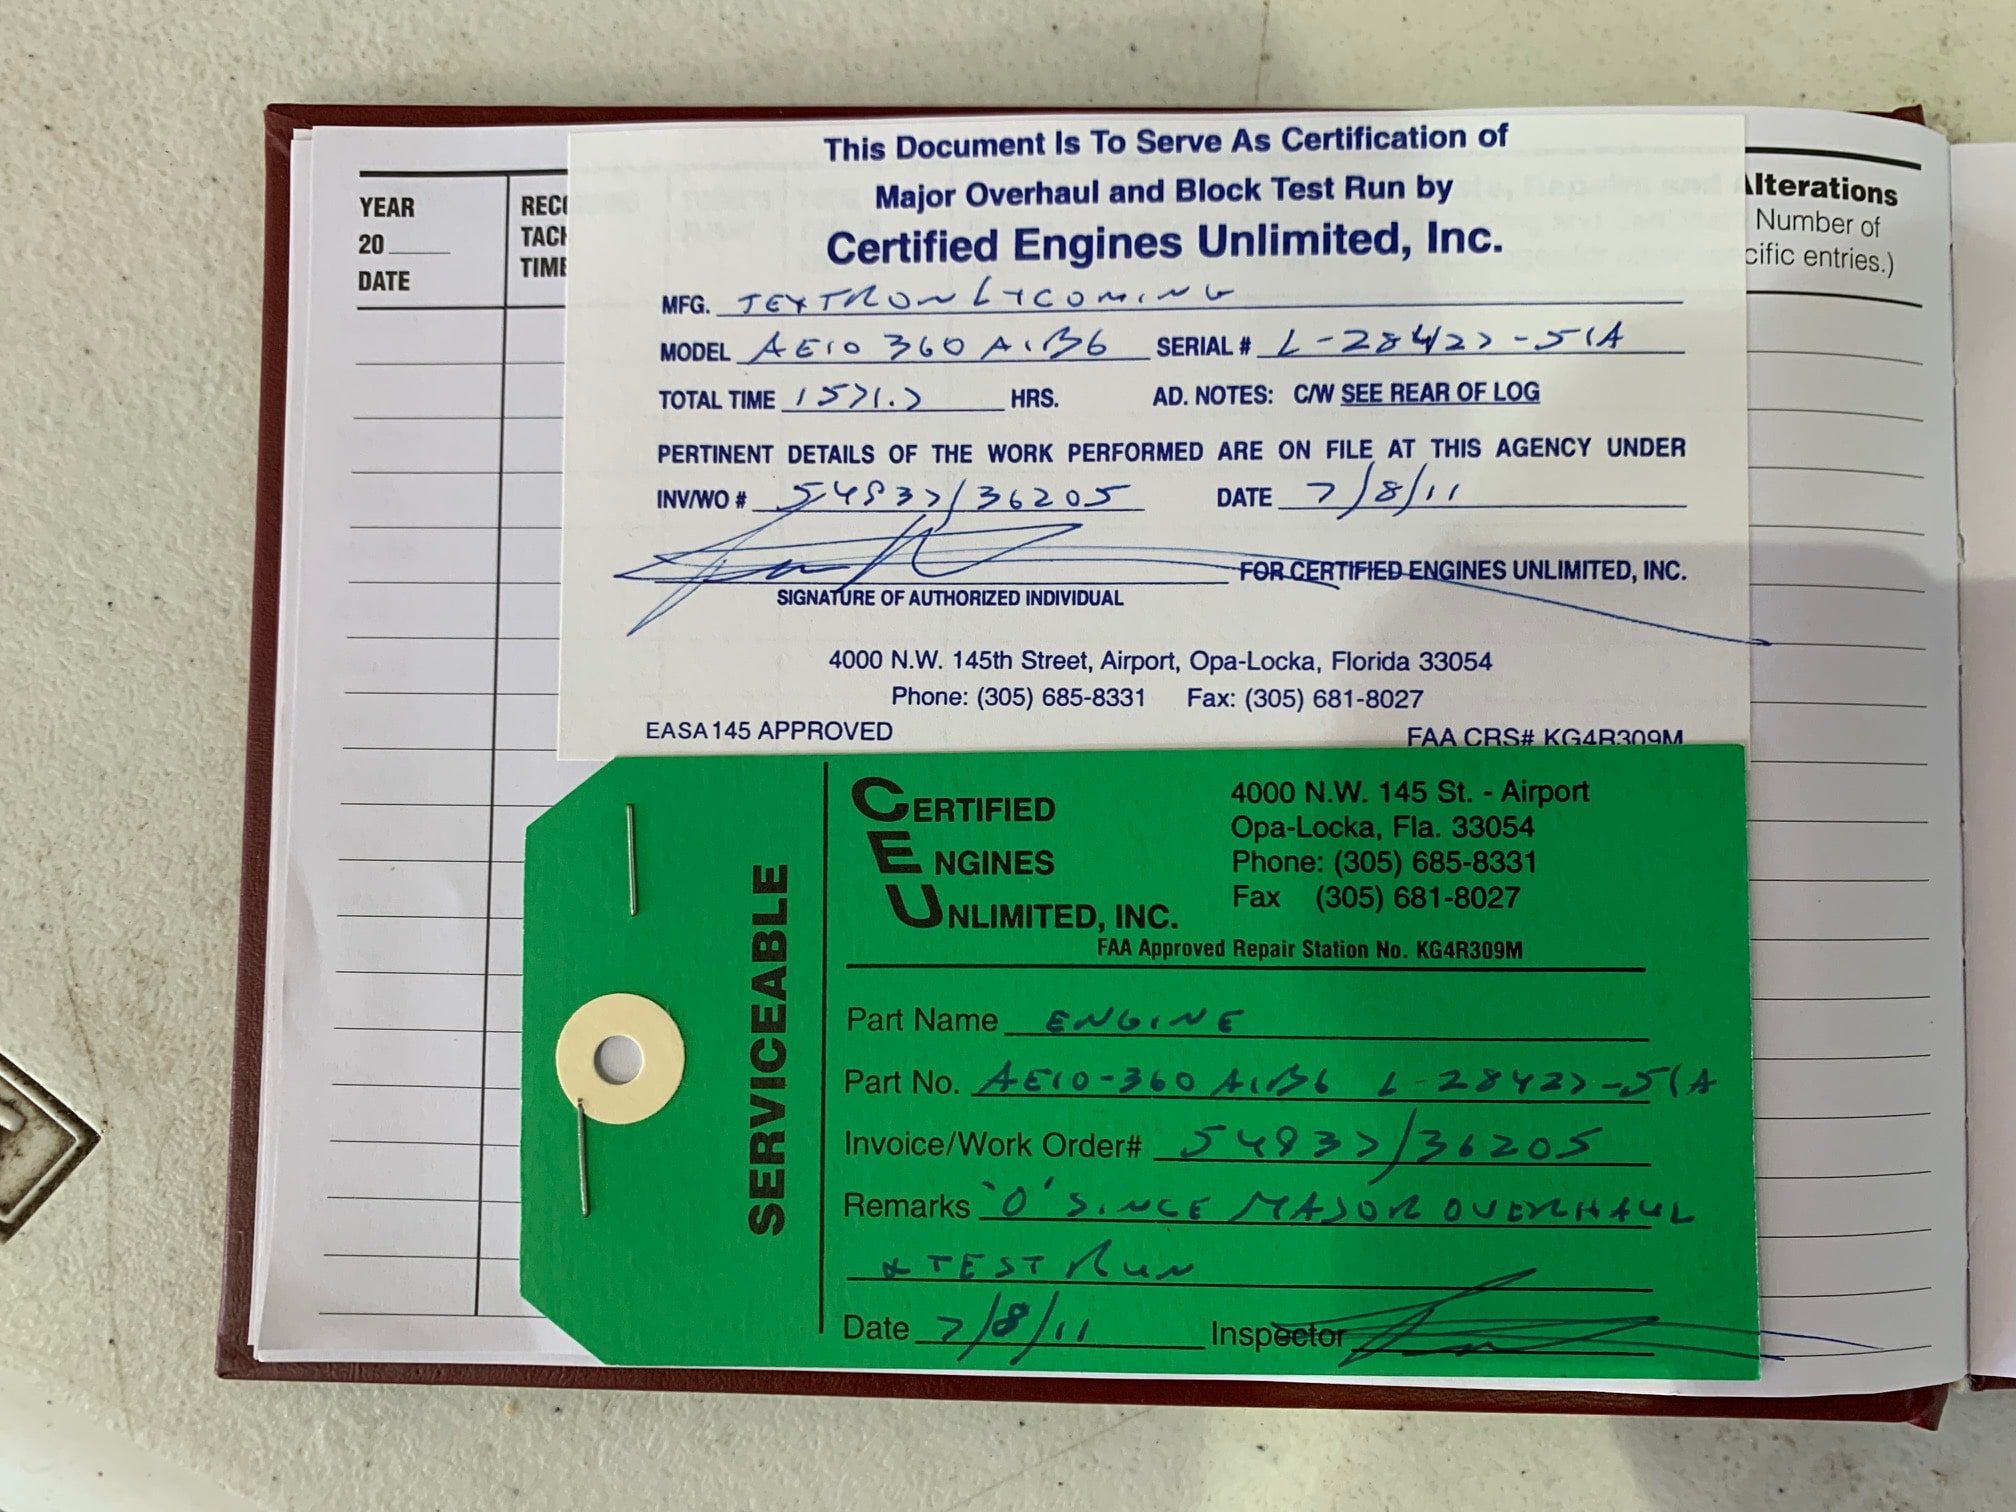 YEAR
20____
DATE
REC
TACH
TIME
Alterations
Number of
cific entries.)
This Document Is To Serve As Certification of
Major Overhaul and Block Test Run by
Certified Engines Unlimited, Inc.
MFG. TEXTRON LYCOMING
MODEL AEIO 360 A1B6 SERIAL # L-28427-51A
TOTAL TIME 1571.7 HRS. AD. NOTES: C/W SEE REAR OF LOG
PERTINENT DETAILS OF THE WORK PERFORMED ARE ON FILE AT THIS AGENCY UNDER
INV/WO # 54937/36205 DATE 7/8/11
FOR CERTIFIED ENGINES UNLIMITED, INC.
SIGNATURE OF AUTHORIZED INDIVIDUAL
4000 N.W. 145th Street, Airport, Opa-Locka, Florida 33054
Phone: (305) 685-8331 Fax: (305) 681-8027
EASA 145 APPROVED FAA CRS# KG4R309M
SERVICEABLE
CERTIFIED
ENGINES
UNLIMITED, INC.
4000 N.W. 145 St. - Airport
Opa-Locka, Fla. 33054
Phone: (305) 685-8331
Fax (305) 681-8027
FAA Approved Repair Station No. KG4R309M
Part Name ENGINE
Part No. AEIO-360 A1B6 L-28427-51A
Invoice/Work Order# 54937/36205
Remarks 'O' SINCE MAJOR OVERHAUL
& TEST RUN
Date 7/8/11 Inspector